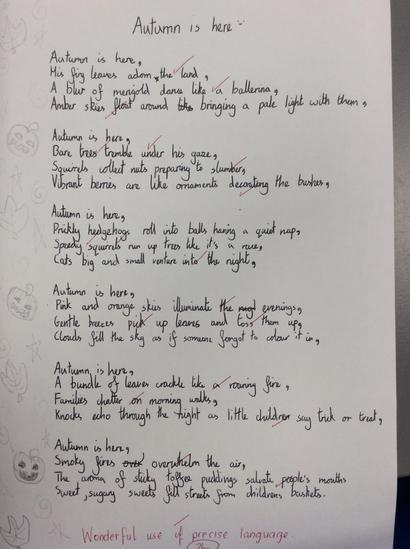 Autumn is here
Autumn is here,
His firy leaves adorn the land,
A blur of merigold dance like a ballerina,
Amber skies float around bringing a pale light with them,
Autumn is here,
Bare trees tremble under his gaze,
Squirrels collect nuts preparing to slumber,
Vibrant berries are like ornaments decorating the bushes,
Autumn is here,
Prickly hedgehogs roll into balls having a quiet nap,
Speedy squirrels run up trees like it's a race,
Cats big and small venture into the night,
Autumn is here,
Pink and orange skies illuminate the evenings,
Gentle breezes pick up leaves and toss them up,
Clouds fill the sky as if someone forgot to colour it in,
Autumn is here,
A bundle of leaves crackle like a roaring fire,
Families chatter on morning walks,
Knocks echo through the night as little children say trick or treat,
Autumn is here,
Smoky fires overwhelm the air,
The aroma of sticky toffee puddings salvate people's mouths
Sweet, sugary sweets fill streets from childrens baskets.
Wonderful use of precise language.